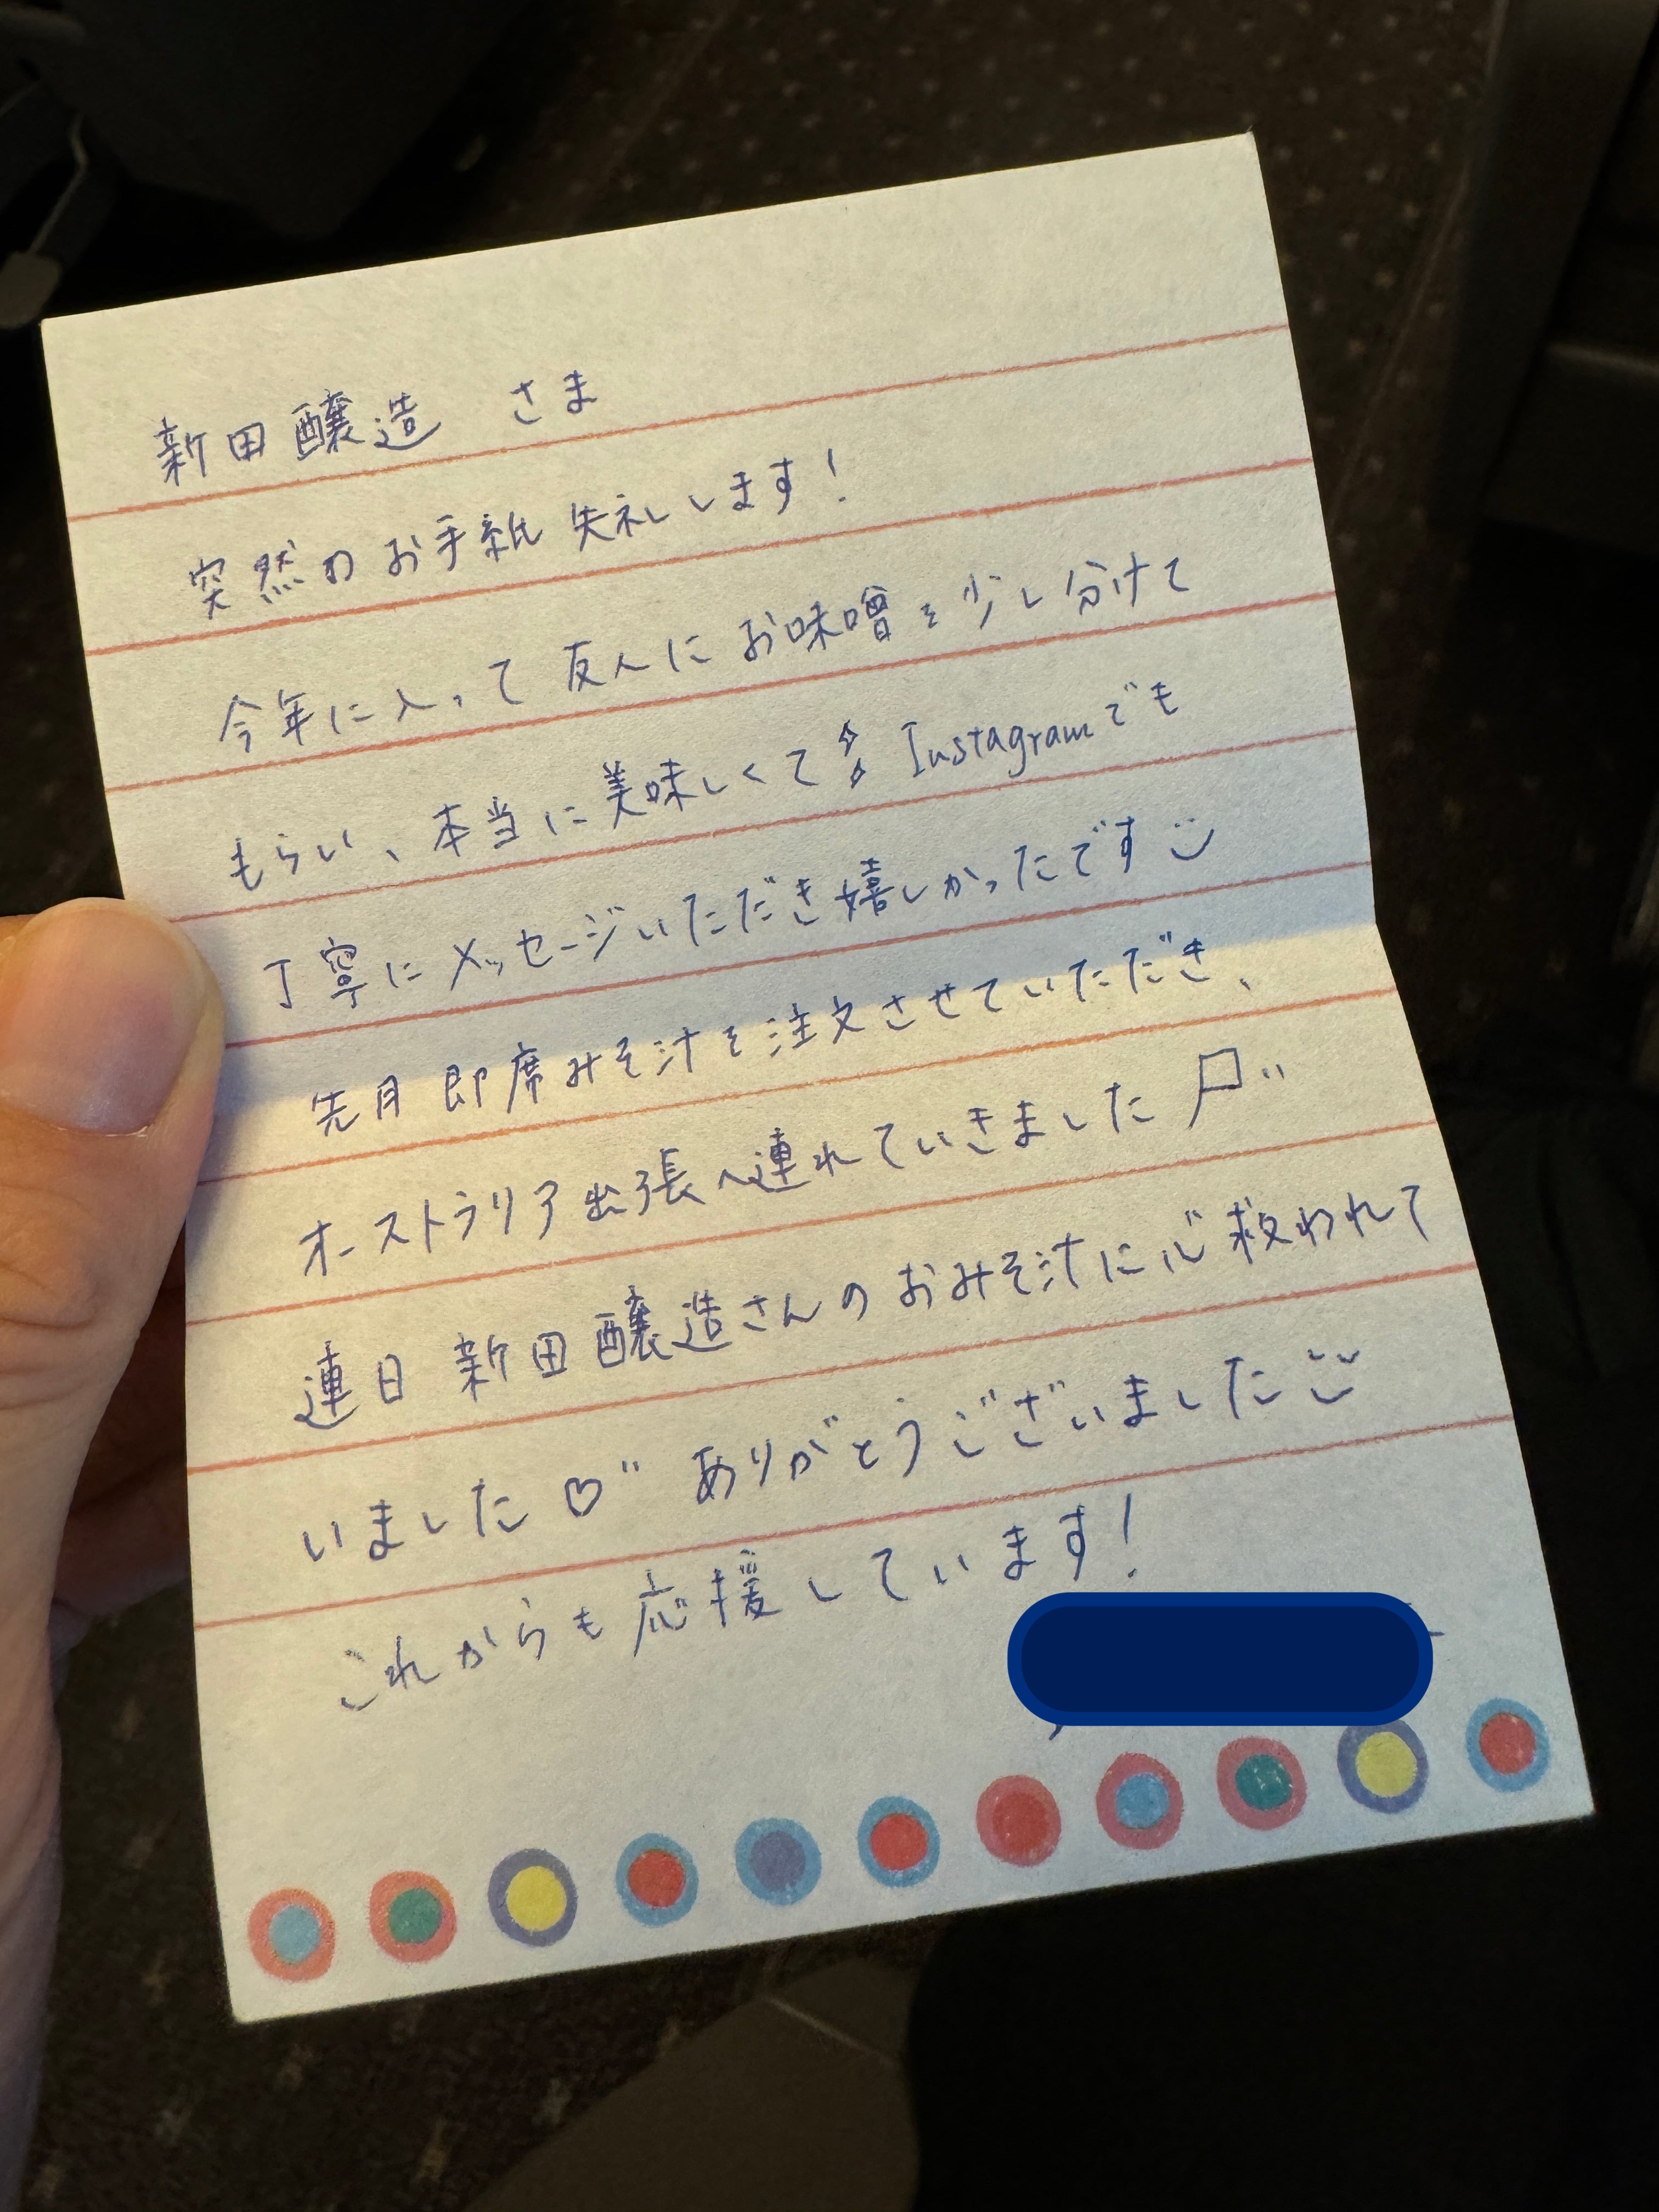 新田醸造 さま
突然のお手紙 失礼しします!
今年に入って 友人に お味噌を少し分けて
もらい、本当に美味しくて Instagramでも
丁寧にメッセージいただき嬉しかったです
先月 即席みそ汁を注文させていただき、
オーストラリア出張へ連れていきました
連日 新田醸造さんの おみそ汁に心救われて
いました♡" ありがとうございました
これからも応援しています!